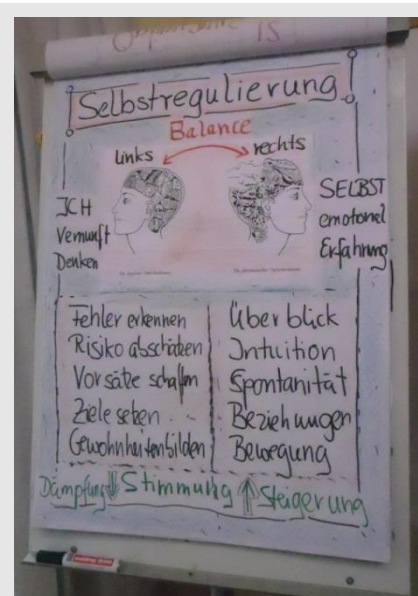 IS
Selbstregulierung
Balance
links rechts
ICH
Vernunft
Denken
SELBST
emotional
Erfahrung
Fehler erkennen
Risiko abschätzen
Vorsätze schaffen
Ziele setzen
Gewohnheiten bilden
Überblick
Intuition
Spontanität
Beziehungen
Bewegung
Dämpfung Stimmung Steigerung